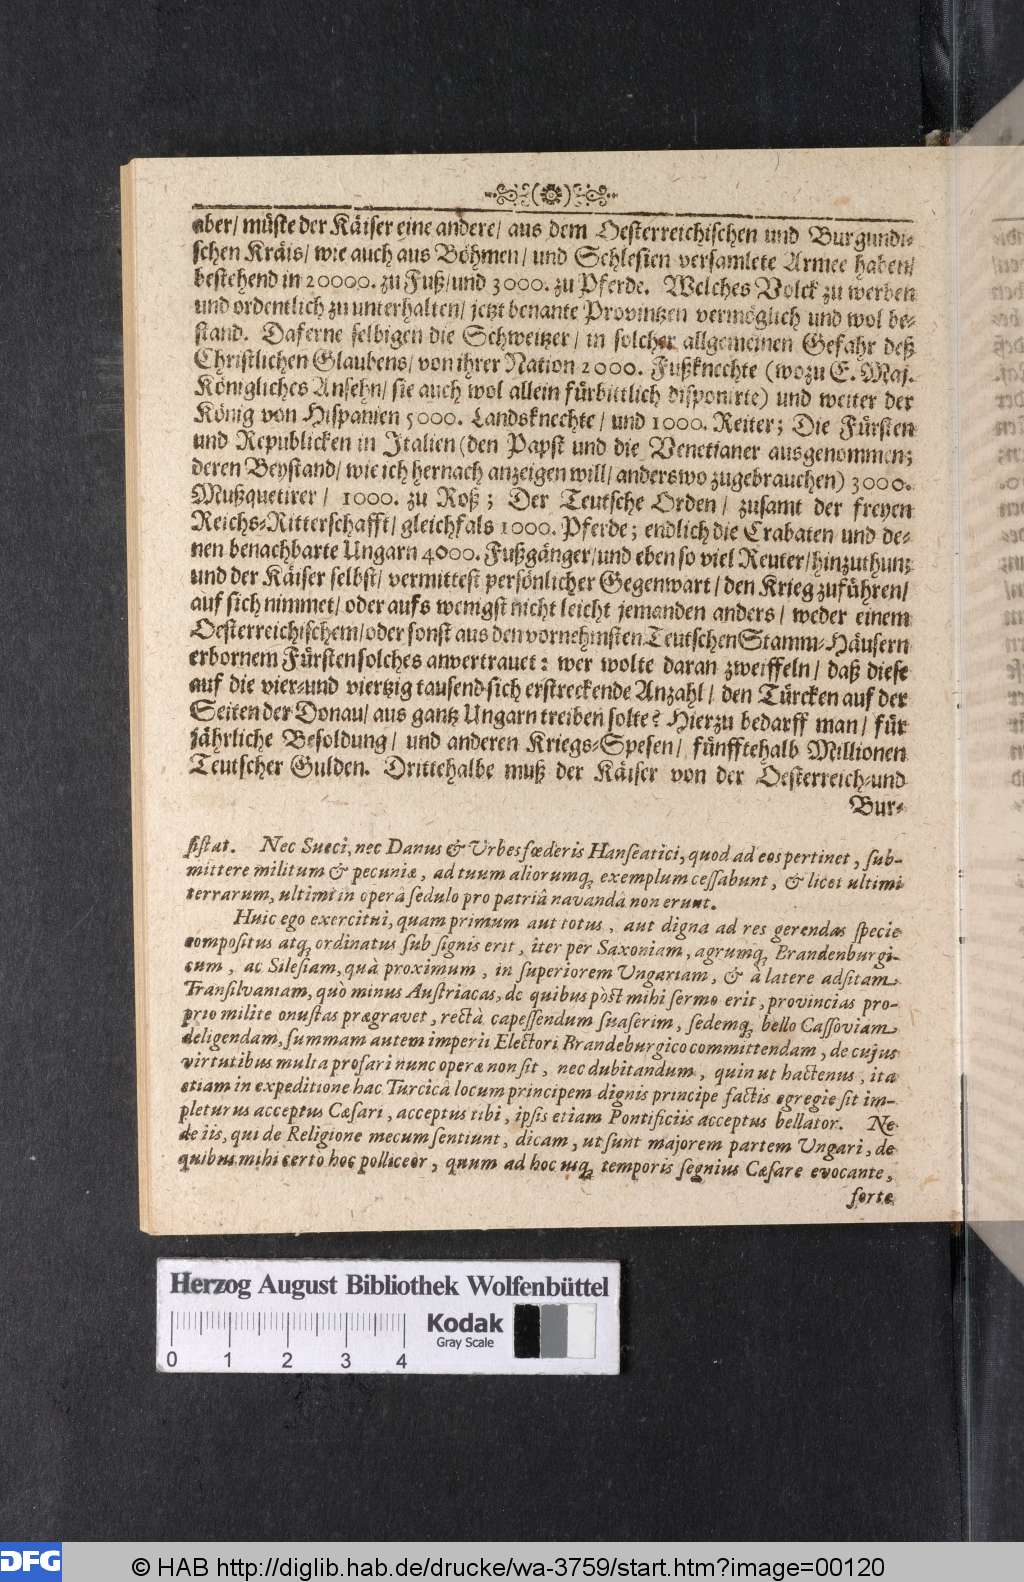 aber/ müste der Käiser eine andere/ aus dem Oesterreichischen und Burgundi-
schen Kräis/ wie auch aus Böhmen/ und Schlesien versamlete Armee haben/
bestehend in 20000. zu Fuß/ und 3000. zu Pferde. Welches Volck zu werben
und ordentlich zu unterhalten/ jetzt benante Provintzen vermöglich und wol be-
stand. Daferne selbigen die Schweitzer/ in solcher allgemeinen Gefahr deß
Christlichen Glaubens/ von ihrer Nation 2000. Fußknechte (wozu E. Maj.
Königliches Ansehn/ sie auch wol allein fürbittlich disponirte) und weiter der
König von Hispanien 5000. Landsknechte/ und 1000. Reiter; Die Fürsten
und Republicken in Italien (den Papst und die Venetianer ausgenommen;
deren Beystand/ wie ich hernach anzeigen will/ anderswo zugebrauchen) 3000.
Mußquetirer/ 1000. zu Roß; Der Teutsche Orden/ zusamt der freyen
Reichs-Ritterschafft/ gleichfals 1000. Pferde; endlich die Crabaten und de-
nen benachbarte Ungarn 4000. Fußgänger/ und eben so viel Reuter/ hinzuthun;
und der Käiser selbst/ vermittest persönlicher Gegenwart/ den Krieg zuführen/
auf sich nimmet/ oder aufs wenigst nicht leicht jemanden anders/ weder einem
Oesterreichischem/ oder sonst aus den vornehmsten Teutschen Stamm-Häusern
erbornem Fürsten solches anvertrauet: wer wolte daran zweiffeln/ daß diese
auf die vier-und viertzig tausend sich erstreckende Anzahl/ den Türcken auf der
Seiten der Donau/ aus gantz Ungarn treiben solte? Hierzu bedarff man/ für
jährliche Besoldung/ und anderen Kriegs-Spesen/ fünfftehalb Millionen
Teutscher Gulden. Drittehalbe muß der Käiser von der Oesterreich-und
Bur-
sistat. Nec Sueci, nec Danus & Urbes fœderis Hanseatici, quod ad eos pertinet, sub-
mittere militum & pecuniæ, ad tuum aliorumq; exemplum cessabunt, & licet ultimi
terrarum, ultimi in operâ sedulo pro patriâ navandâ non erunt.
Huic ego exercitui, quam primum aut totus, aut digna ad res gerendas specie
compositus atq; ordinatus sub signis erit, iter per Saxoniam, agrumq; Brandenburgi-
cum, ac Silesiam, quà proximum, in superiorem Ungariam, & à latere adsitam
Transilvaniam, quò minus Austriacas, de quibus pòst mihi sermo erit, provincias pro-
prio milite onustas prægravet, rectà capessendum suaserim, sedemq; bello Cassoviam
deligendam, summam autem imperii Electori Brandeburgico committendam, de cujus
virtutibus multa profari nunc operæ non sit, nec dubitandum, quin ut hactenus, ita
etiam in expeditione hac Turcicâ locum principem dignis principe factis egregie sit im-
pleturus acceptus Cæsari, acceptus tibi, ipsis etiam Pontificiis acceptus bellator. Ne
de iis, qui de Religione mecum sentiunt, dicam, ut sunt majorem partem Ungari, de
quibus mihi certo hoc polliceor, quum ad hoc usq; temporis segnius Cæsare evocante,
forte
Herzog August Bibliothek Wolfenbüttel
Kodak
Gray Scale
0 1 2 3 4
DFG
© HAB http://diglib.hab.de/drucke/wa-3759/start.htm?image=00120